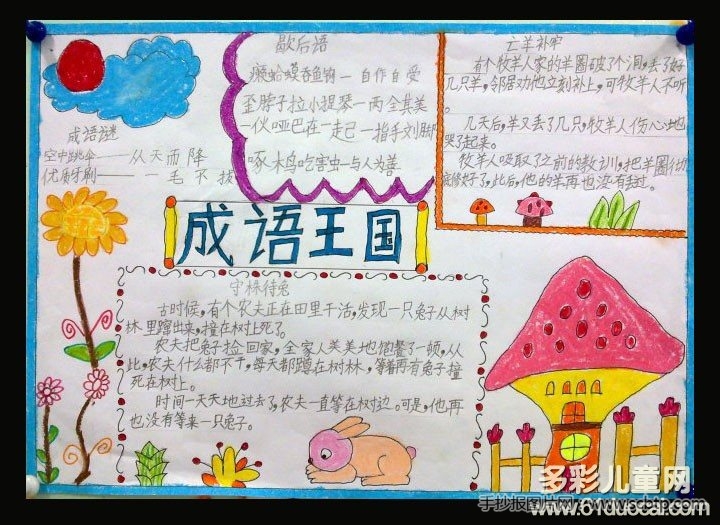 成语谜
空中跳伞——从天而降
优质牙刷——一毛不拔
歇后语
癞蛤蟆吞鱼钩—自作自受
歪脖子拉小提琴—两全其美
一伙哑巴在一起—指手划脚
啄木鸟吃害虫—与人为善
亡羊补牢
有个牧羊人家的羊圈破了个洞，丢了好
几只羊，邻居劝他立刻补上，可牧羊人不听
。
几天后，羊又丢了几只，牧羊人伤心地
哭了起来。
牧羊人吸取了之前的教训，把羊圈
修好了，此后，他的羊再也没有丢过。
成语王国
守株待兔
古时候，有个农夫正在田里干活，发现一只兔子从树
林里蹿出来，撞在树上死了。
农夫把兔子捡回家，全家人美美地饱餐了一顿，从
此，农夫什么都不干，每天都蹲在树林，等着再有兔子撞
死在树上。
时间一天天地过去了，农夫一直等在树边。可是，他再
也没有等来一只兔子。
多彩儿童网
手抄报图片网
www.61duocai.com